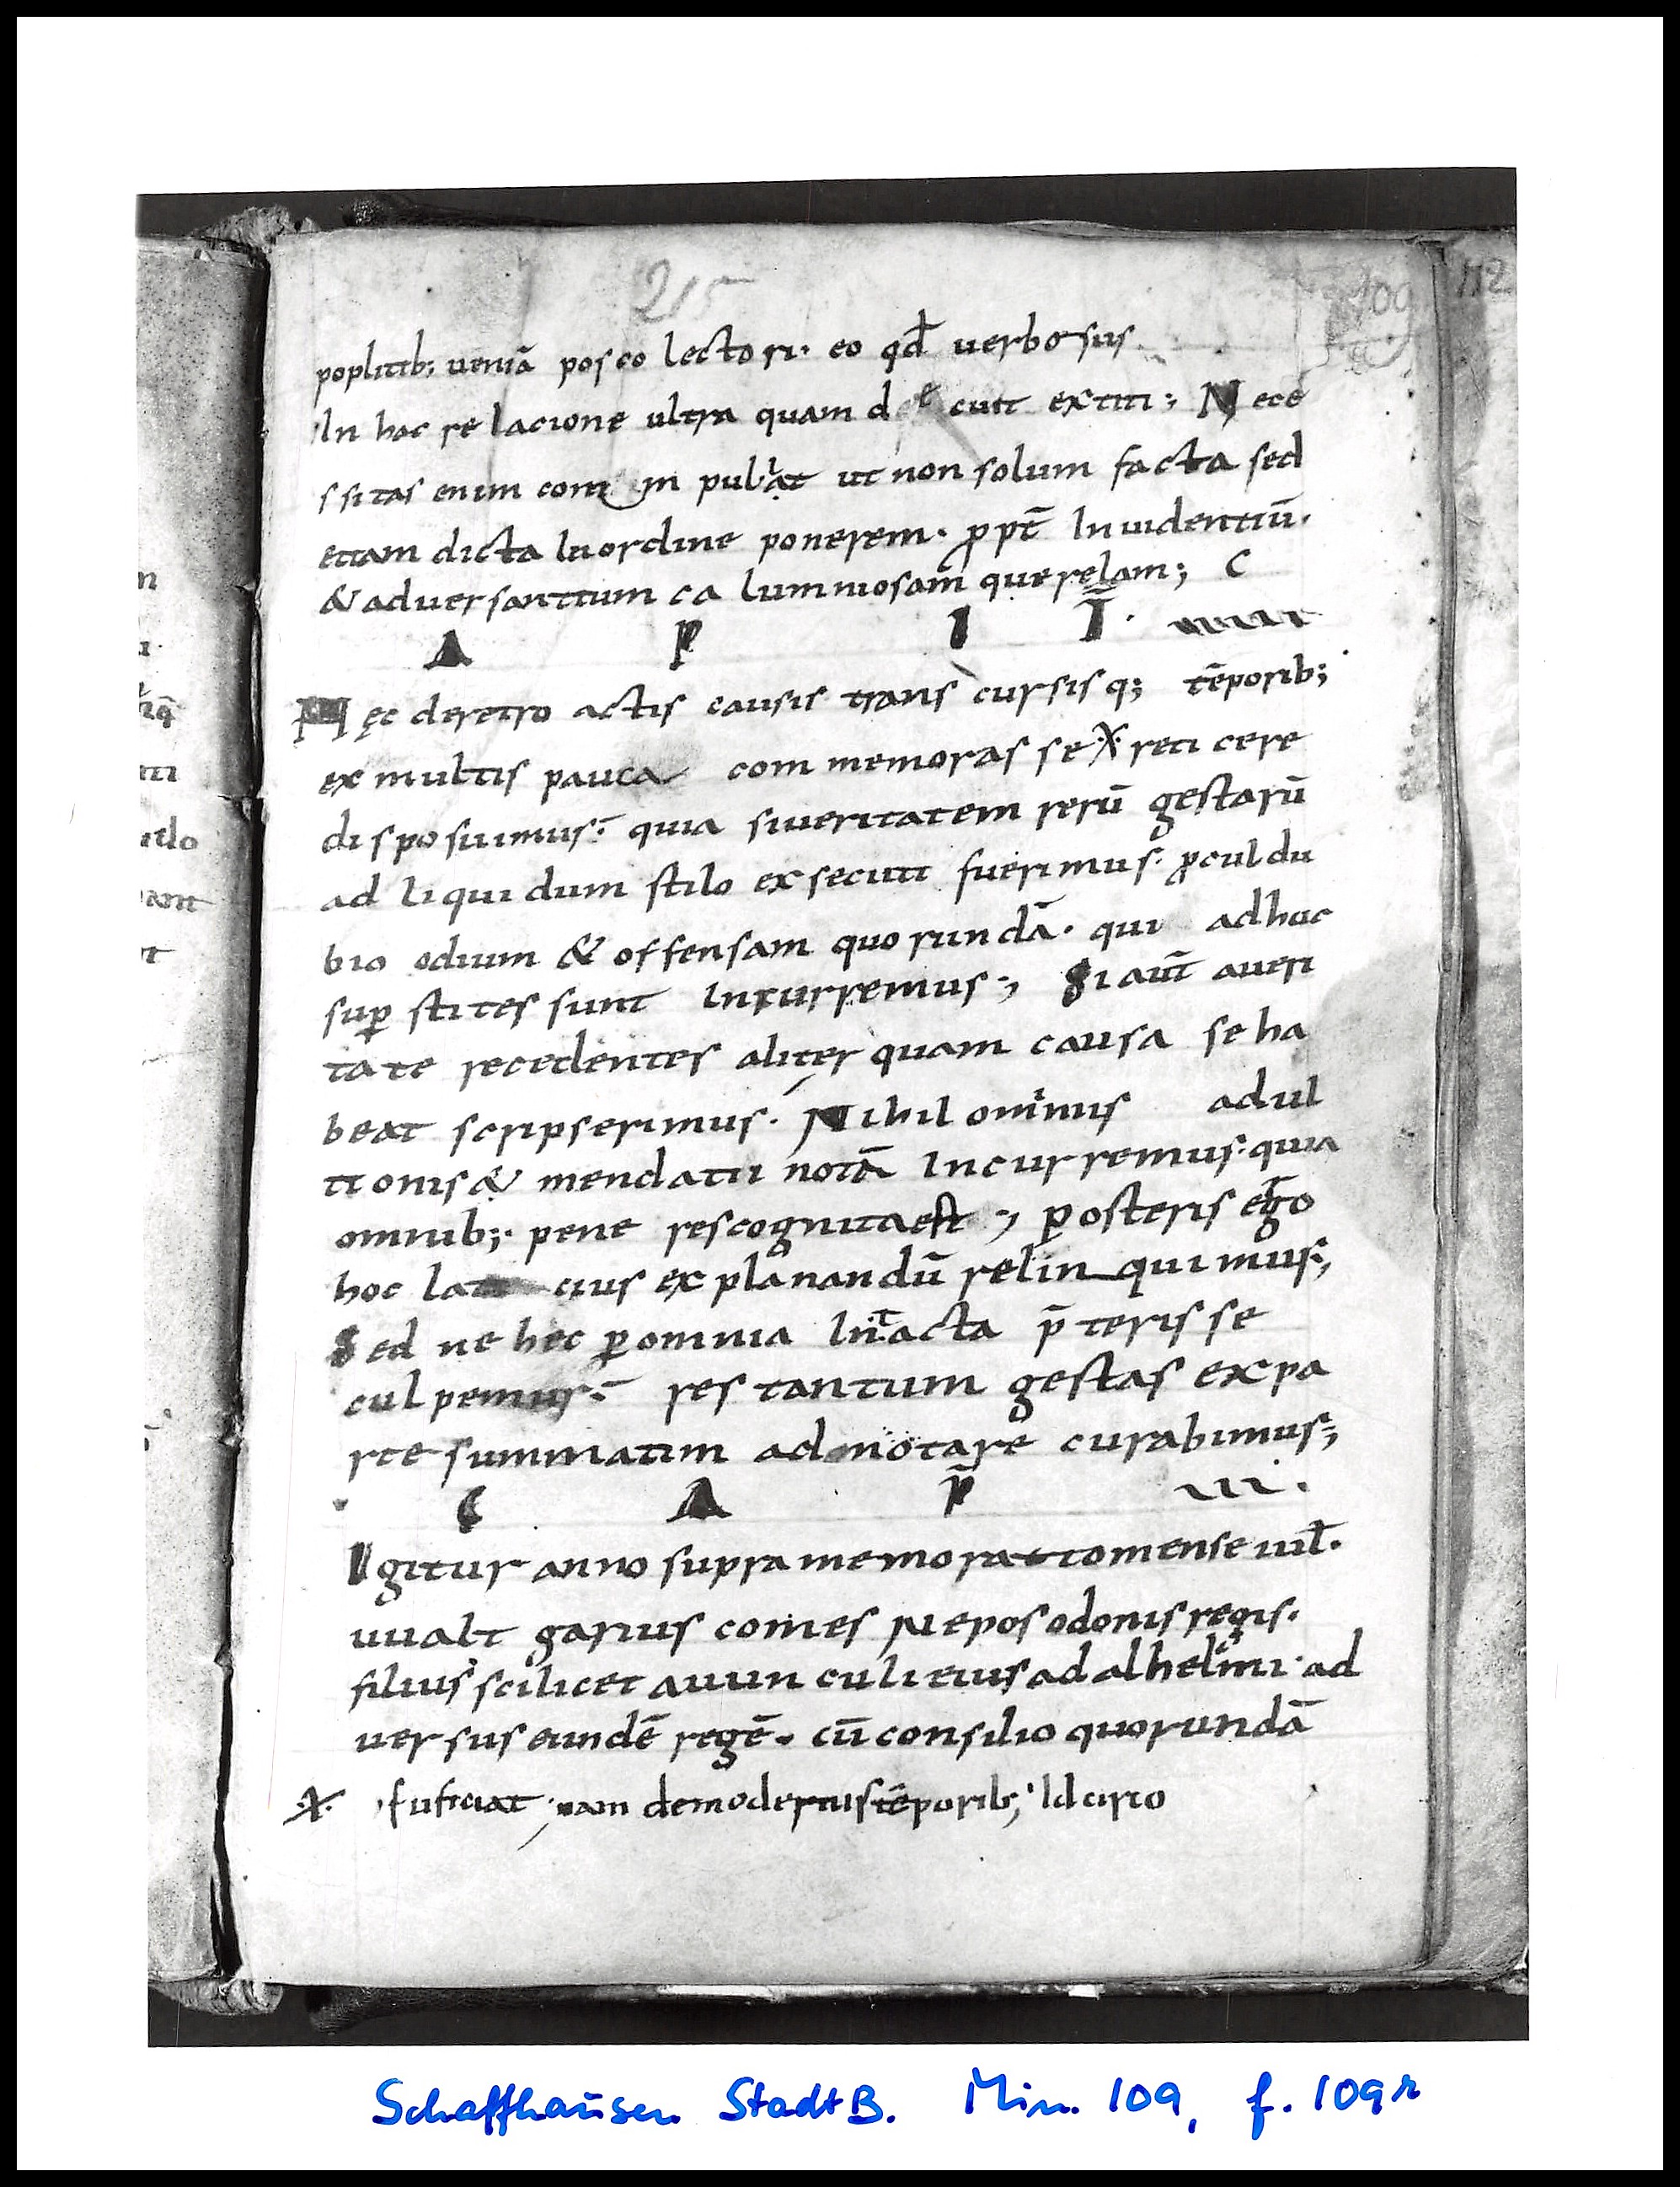 215
109
112
poplitib; ueniā posco lectori· eo qđ uerbosus
In hoc relacione ultra quam decuit extiti; Nece
ssitas enim compulit ut non solum facta sed
etiam dicta In ordine ponerem· ꝓpt̄ Inuidentiū·
& aduersantium calumniosam querelam; C
A P I T̄·
Hęc de retro actis causis transcursisq; tēporib;
ex multis pauca commemorasse ·X· reticere
disposuimus· quia si ueritatem rerū gestarū
ad liquidum stilo exsecuti fuerimus· ꝓcul du
bio odium & offensam quorundā· qui adhuc
suꝑstites sunt Incurremus; Si aut̄ a ueri
tate recedentes aliter quam causa se ha
beat scripserimus· Nihil ominus adul
tionis & mendatii notā Incurremus· quia
omnib; pene res cognita est; posteris eḡo
hoc latius explanandū relinquimus;
Sed ne hec ꝑ omnia Intacta p̄terisse
culpemur· res tantum gestas ex pa
rte summatim adnotare curabimus;
C A P̄ iii·
Igitur anno supra memorato mense iul̄·
uualtgarius comes Nepos odonis regis·
filius scilicet auunculi eius adalhelmi· ad
uersus eundē regē· cū consilio quorundā
·X· sufficiat, nam de modernis tēporib; Idcirco
n
iti
ant
Schaffhausen StadtB. Min. 109, f. 109r